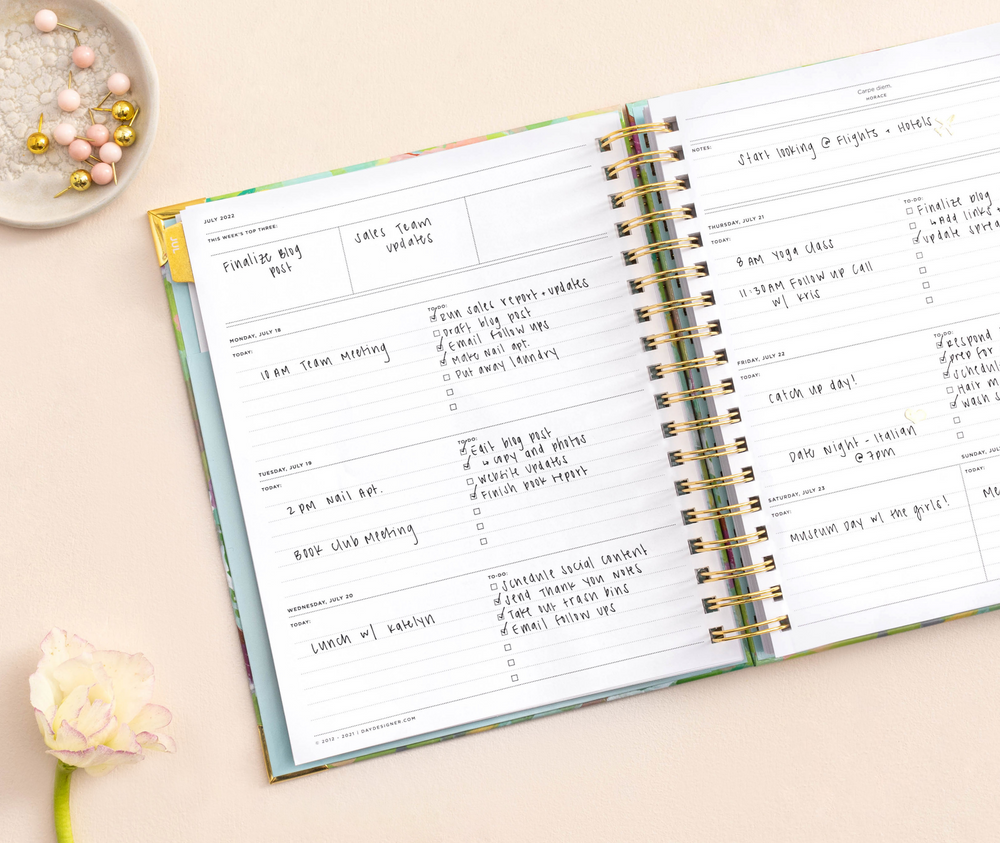 JUL
JULY 2022
THIS WEEK'S TOP THREE:
Finalize Blog
post
Sales Team
updates
MONDAY, JULY 18
TODAY:
10 AM Team Meeting
TO-DO:
Run sales report + updates
Draft blog post
Email Follow ups
Make Nail apt.
Put away laundry
TUESDAY, JULY 19
TODAY:
2 PM Nail Apt.
Book Club Meeting
TO-DO:
Edit blog post
↳ copy and photos
Website updates
Finish book report
WEDNESDAY, JULY 20
TODAY:
Lunch w/ Katelyn
TO-DO:
Schedule social content
Send Thank you Notes
Take out trash bins
Email Follow ups
© 2012 - 2021 | DAYDESIGNER.COM
Carpe diem.
HORACE
NOTES:
Start looking @ Flights + Hotels
THURSDAY, JULY 21
TODAY:
8 AM Yoga Class
11:30AM Follow up Call
w/ Kris
TO-DO:
Finalize blog
↳ Add links +
update sprea
FRIDAY, JULY 22
TODAY:
Catch up day!
Date Night - Italian
@ 7pm
TO-DO:
Respond
prep for
Schedul
Hair m
wash s
SATURDAY, JULY 23
TODAY:
Museum Day w/ the girls!
SUNDAY, JULY
TODAY:
Me